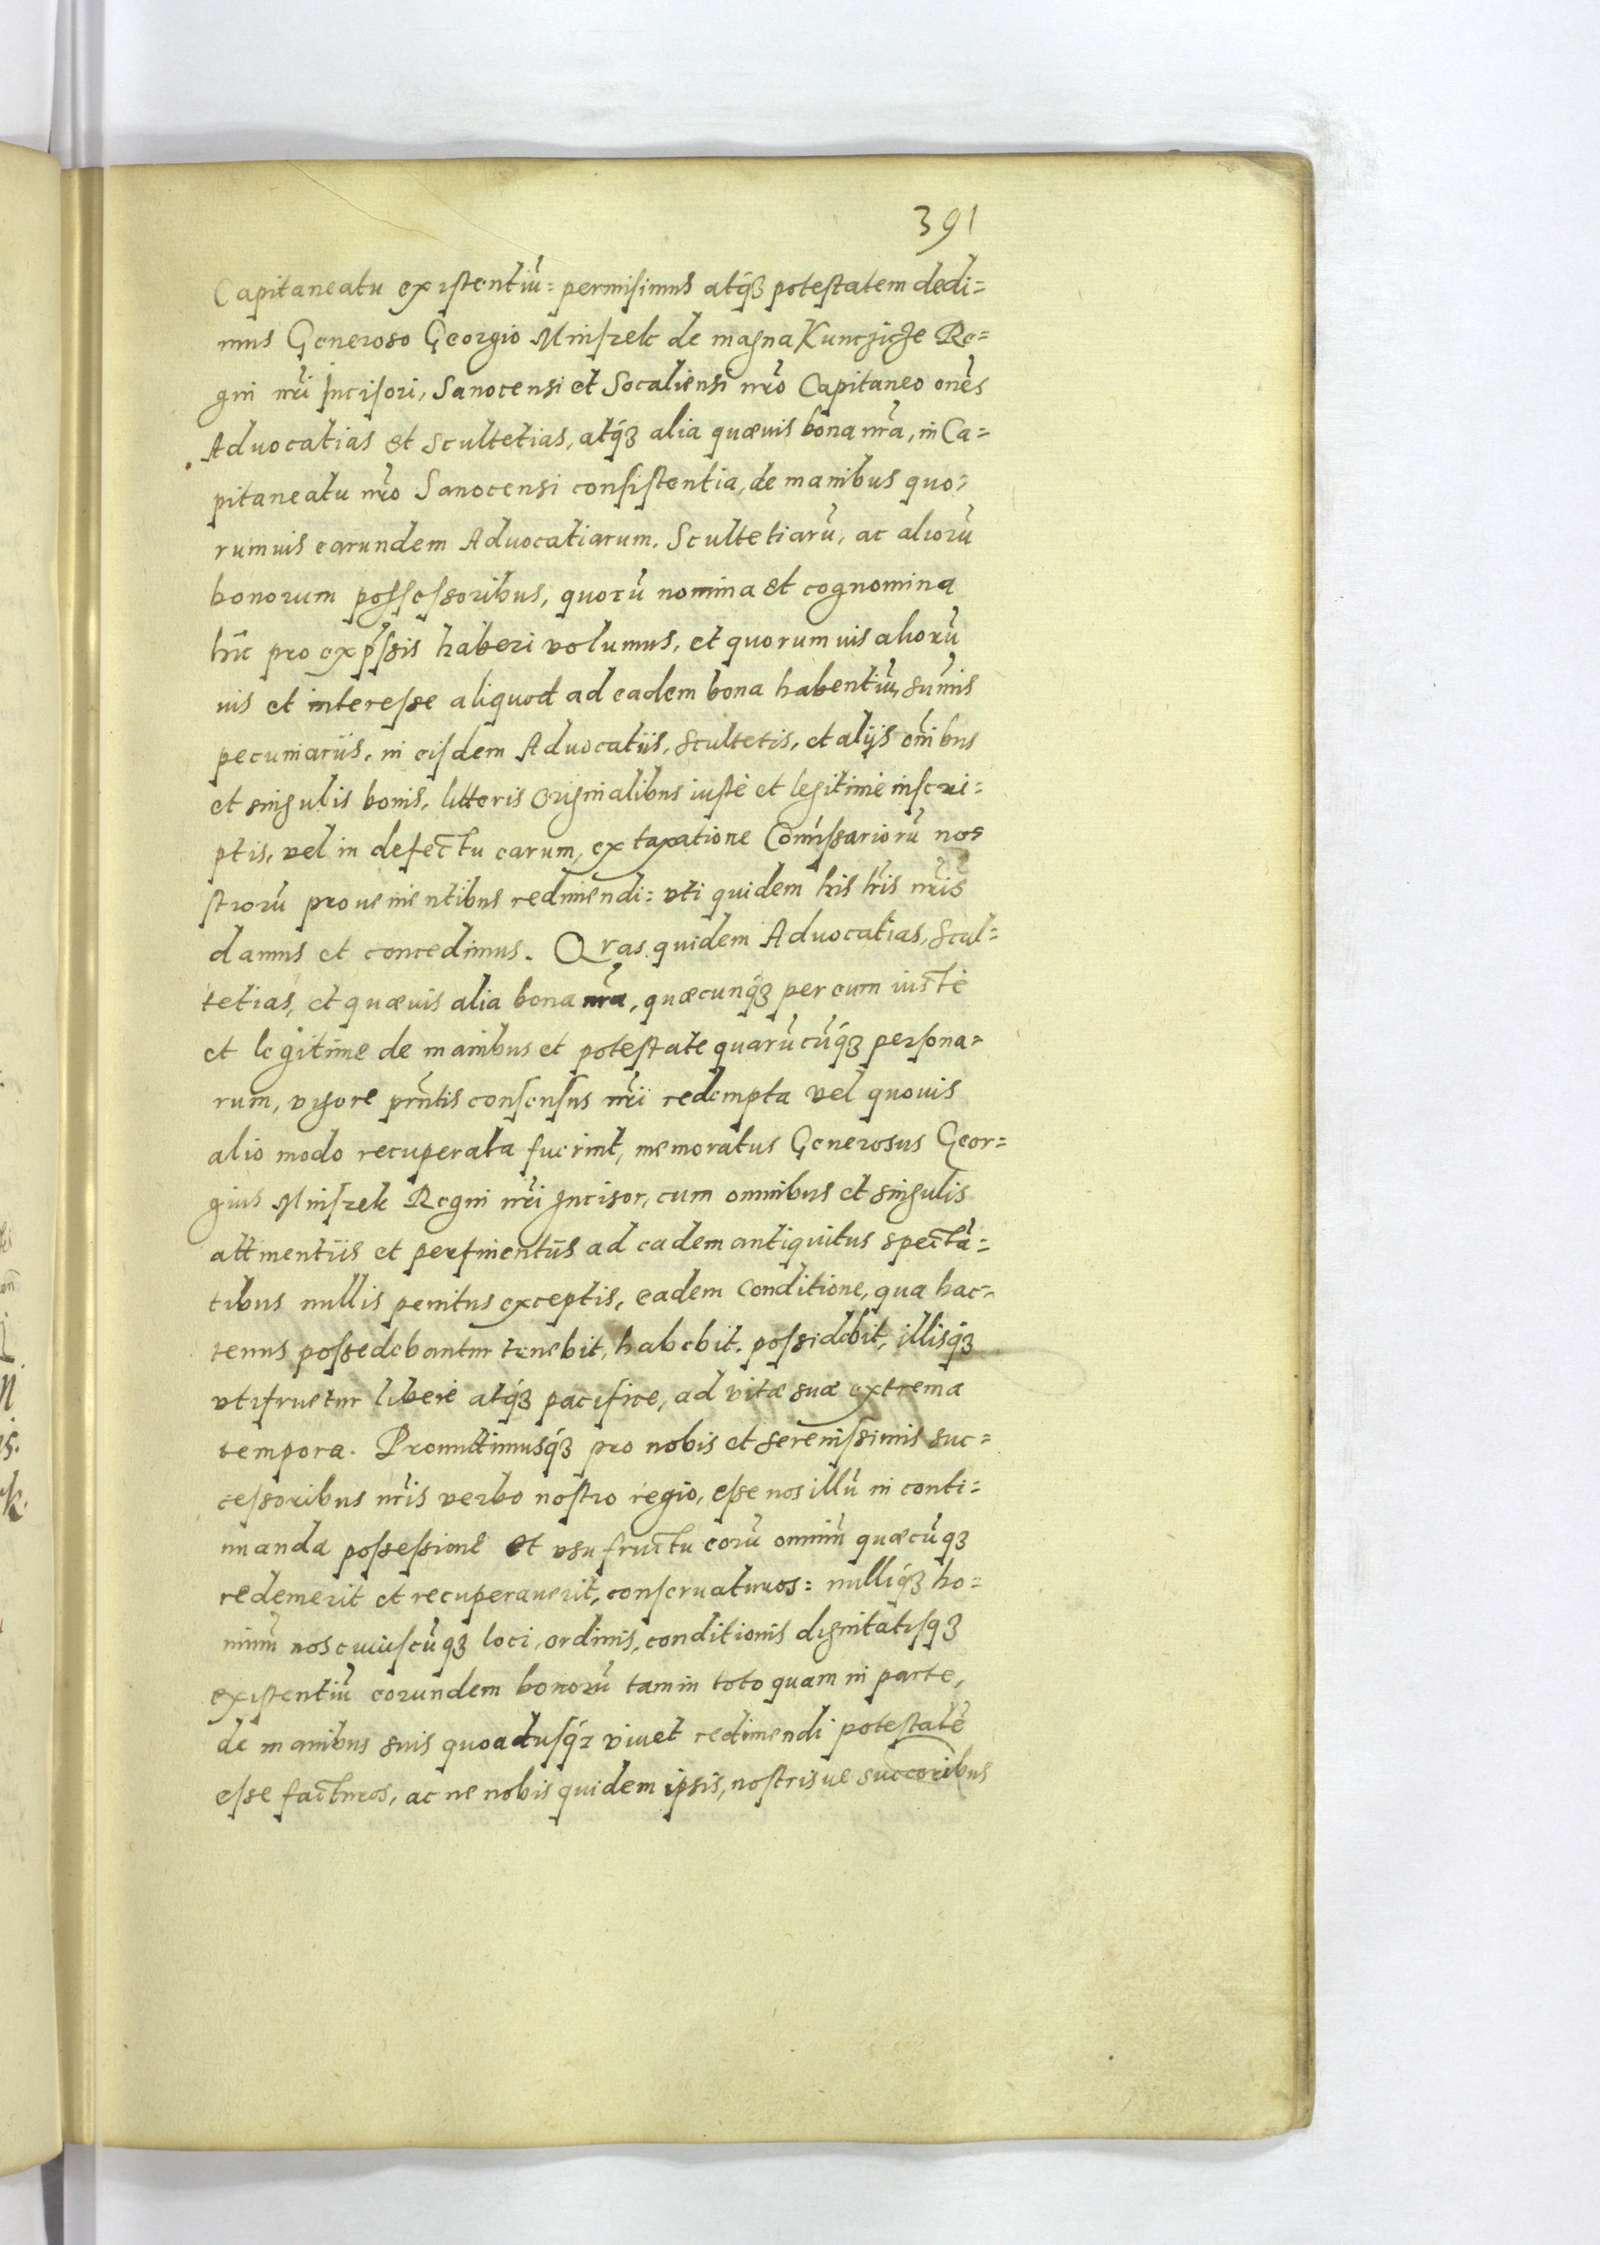 391
Capitaneatu existentiũ = permisimus atq́ꝫ potestatem dedi=
mus Generoso Georgio Mniszek de magna Kunczicze Re=
gni nr̃i Incisori, Sanocensi et Socaliensi nr̃o Capitaneo oñes
Aduocatias et Scultetias, atq́ꝫ alia quæuis bona nr̃a, in Ca=
pitaneatu nr̃o Sanocensi consistentia, de manibus quo=
rumuis earundem Aduocatiarum, Scultetiarũ, ac alioru͂
bonorum possessoribus, quorũ nomina et cognomina
hic̃ pro exp̃ssis haberi volumus, et quorumuis aliorũ
uis et interesse aliquod ad eadem bona habentiũ, sum̃is
pecuniariis, in eisdem Aduocatiis, Scultetis, et alijs om̃ibus
et singulis bonis, litteris originalibus iustè et legitimè inscri=
ptis, vel in defectu earum, ex taxatione Com̃issariorũ nos
strorũ prouenientibus redimendi = vti quidem his lr̃is nr̃is
damus et concedimus. Qvas quidem Aduocatias, Scul=
tetias, et quæuis alia bona nr̃a, quæcunq́ꝫ per eum iustè
et legitime de manibus et potestate quarũcũq́ꝫ persona=
rum, vigore pr̃ntis consensus nr̃i redempta vel quouis
alio modo recuperata fuerint, memoratus Generosus Geor=
gius Mniszek Regni nr̃i Incisor, cum omnibus et singulis
attinentiis et pertinentiis ad eadem antiquitus spectã=
tibus nullis penitus exceptis, eadem conditione, qua hac=
tenus possedebantur tenebit, habebit, possidebit, illisq́ꝫ
vtifruetur liberè atq́ꝫ pacifice, ad vitæ suæ extrema
tempora. Promittimusq́ꝫ pro nobis et serenissimis suc=
cessoribus nr̃is verbo nostro regio, esse nos illũ in conti=
nuanda possessione et vsufructu eorũ omniũ quæcũqꝫ
redemerit et recuperauerit, conseruaturos = nulliq́ꝫ ho=
minũ nos cuiuscũqꝫ loci, ordinis, conditionis dignitatisqꝫ
existentiũ eorundem bonorũ tam in toto quam in parte,
de manibus suis quoadusq́ꝫ viuet redimendi potestatẽ
esse facturos, ac ne nobis quidem ipsis, nostrisue succoribus